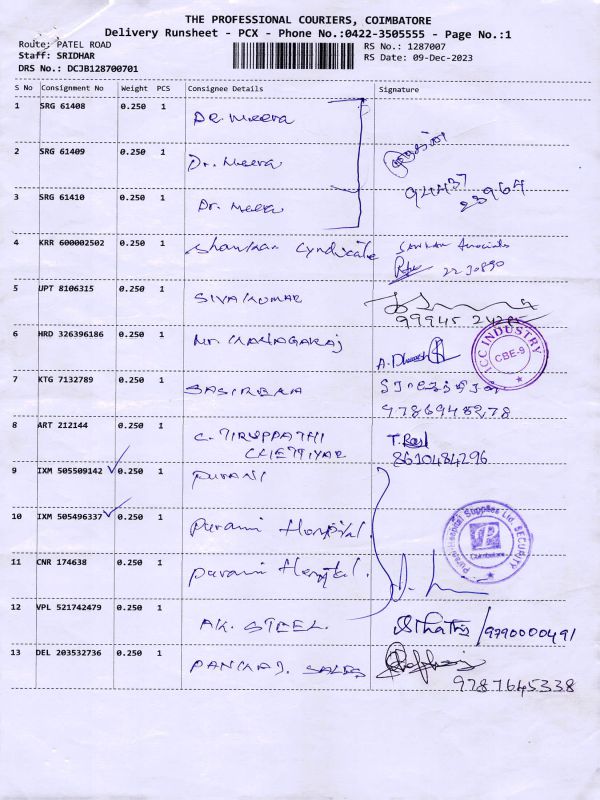 THE PROFESSIONAL COURIERS, COIMBATORE
Delivery Runsheet - PCX - Phone No.:0422-3505555 - Page No.:1
Route: PATEL ROAD
RS No.: 1287007
Staff: SRIDHAR
RS Date: 09-Dec-2023
DRS No.: DCJB128700701
S No Consignment No Weight PCS Consignee Details Signature
1 SRG 61408 0.250 1 DR. Meera
2 SRG 61409 0.250 1 Dr. Meera
3 SRG 61410 0.250 1 Dr. Meera
94437
23964
4 KRR 600002502 0.250 1 Shankar Syndicate
5 UPT 8106315 0.250 1 SIVAKUMAR
99945 24285
6 HRD 326396186 0.250 1 Mr. KANAGARAJ
ICC INDUSTRY
CBE-9
7 KTG 7132789 0.250 1 SASIREKA
9786948278
8 ART 212144 0.250 1 C. TIRUPPATHI
CHETTIYAR
8610484296
9 IXM 505509142 0.250 1 PURANI
10 IXM 505496337 0.250 1 Purani Hospital.
Purani Hospital Supplies Ltd. SECURITY
Coimbatore
11 CNR 174638 0.250 1 Purani Hospital.
12 VPL 521742479 0.250 1 AK. STEEL.
/9790000491
13 DEL 203532736 0.250 1 PANKAJ. SALES
9787645338